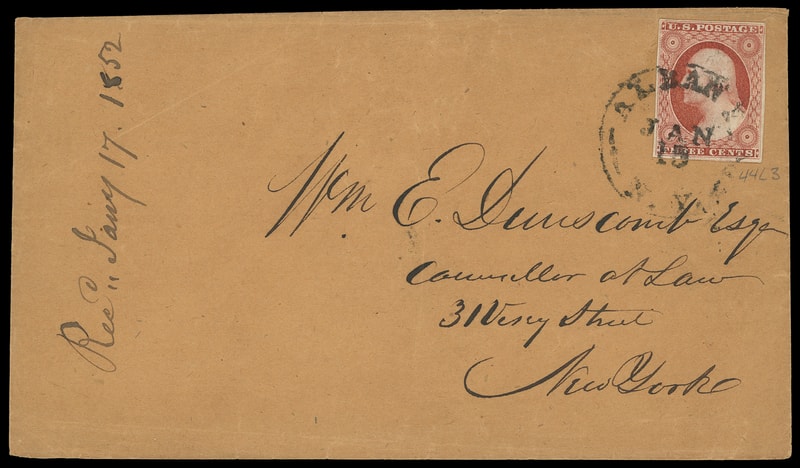 U.S. POSTAGE
THREE CENTS
ALBANY
JAN
15
N.Y.
44L3
Wm E. Dunscomb Esqr
Councellor at Law
31 Vesey Street
New York
Rec'd Jany 17. 1852